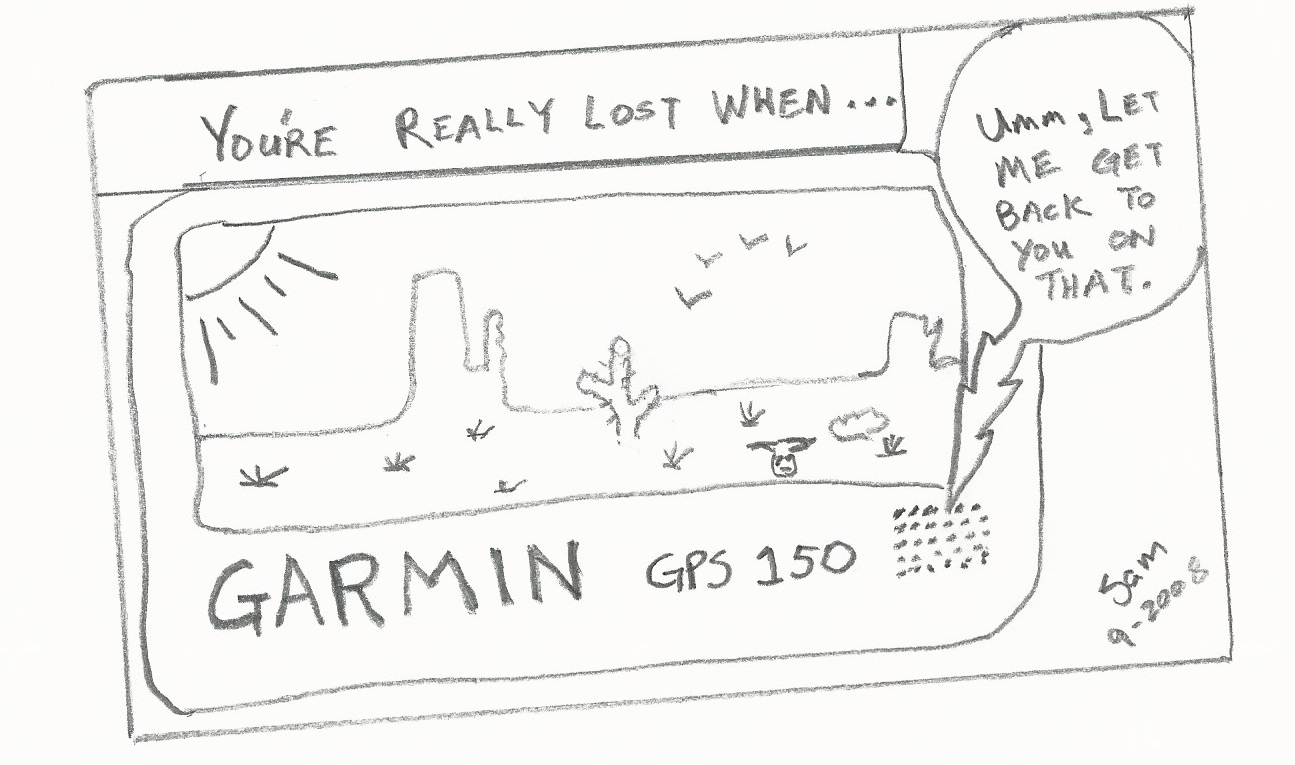 YOU'RE REALLY LOST WHEN....
Umm, LET
ME GET
BACK TO
YOU ON
THAT.
GARMIN GPS 150
Sam
9-2008